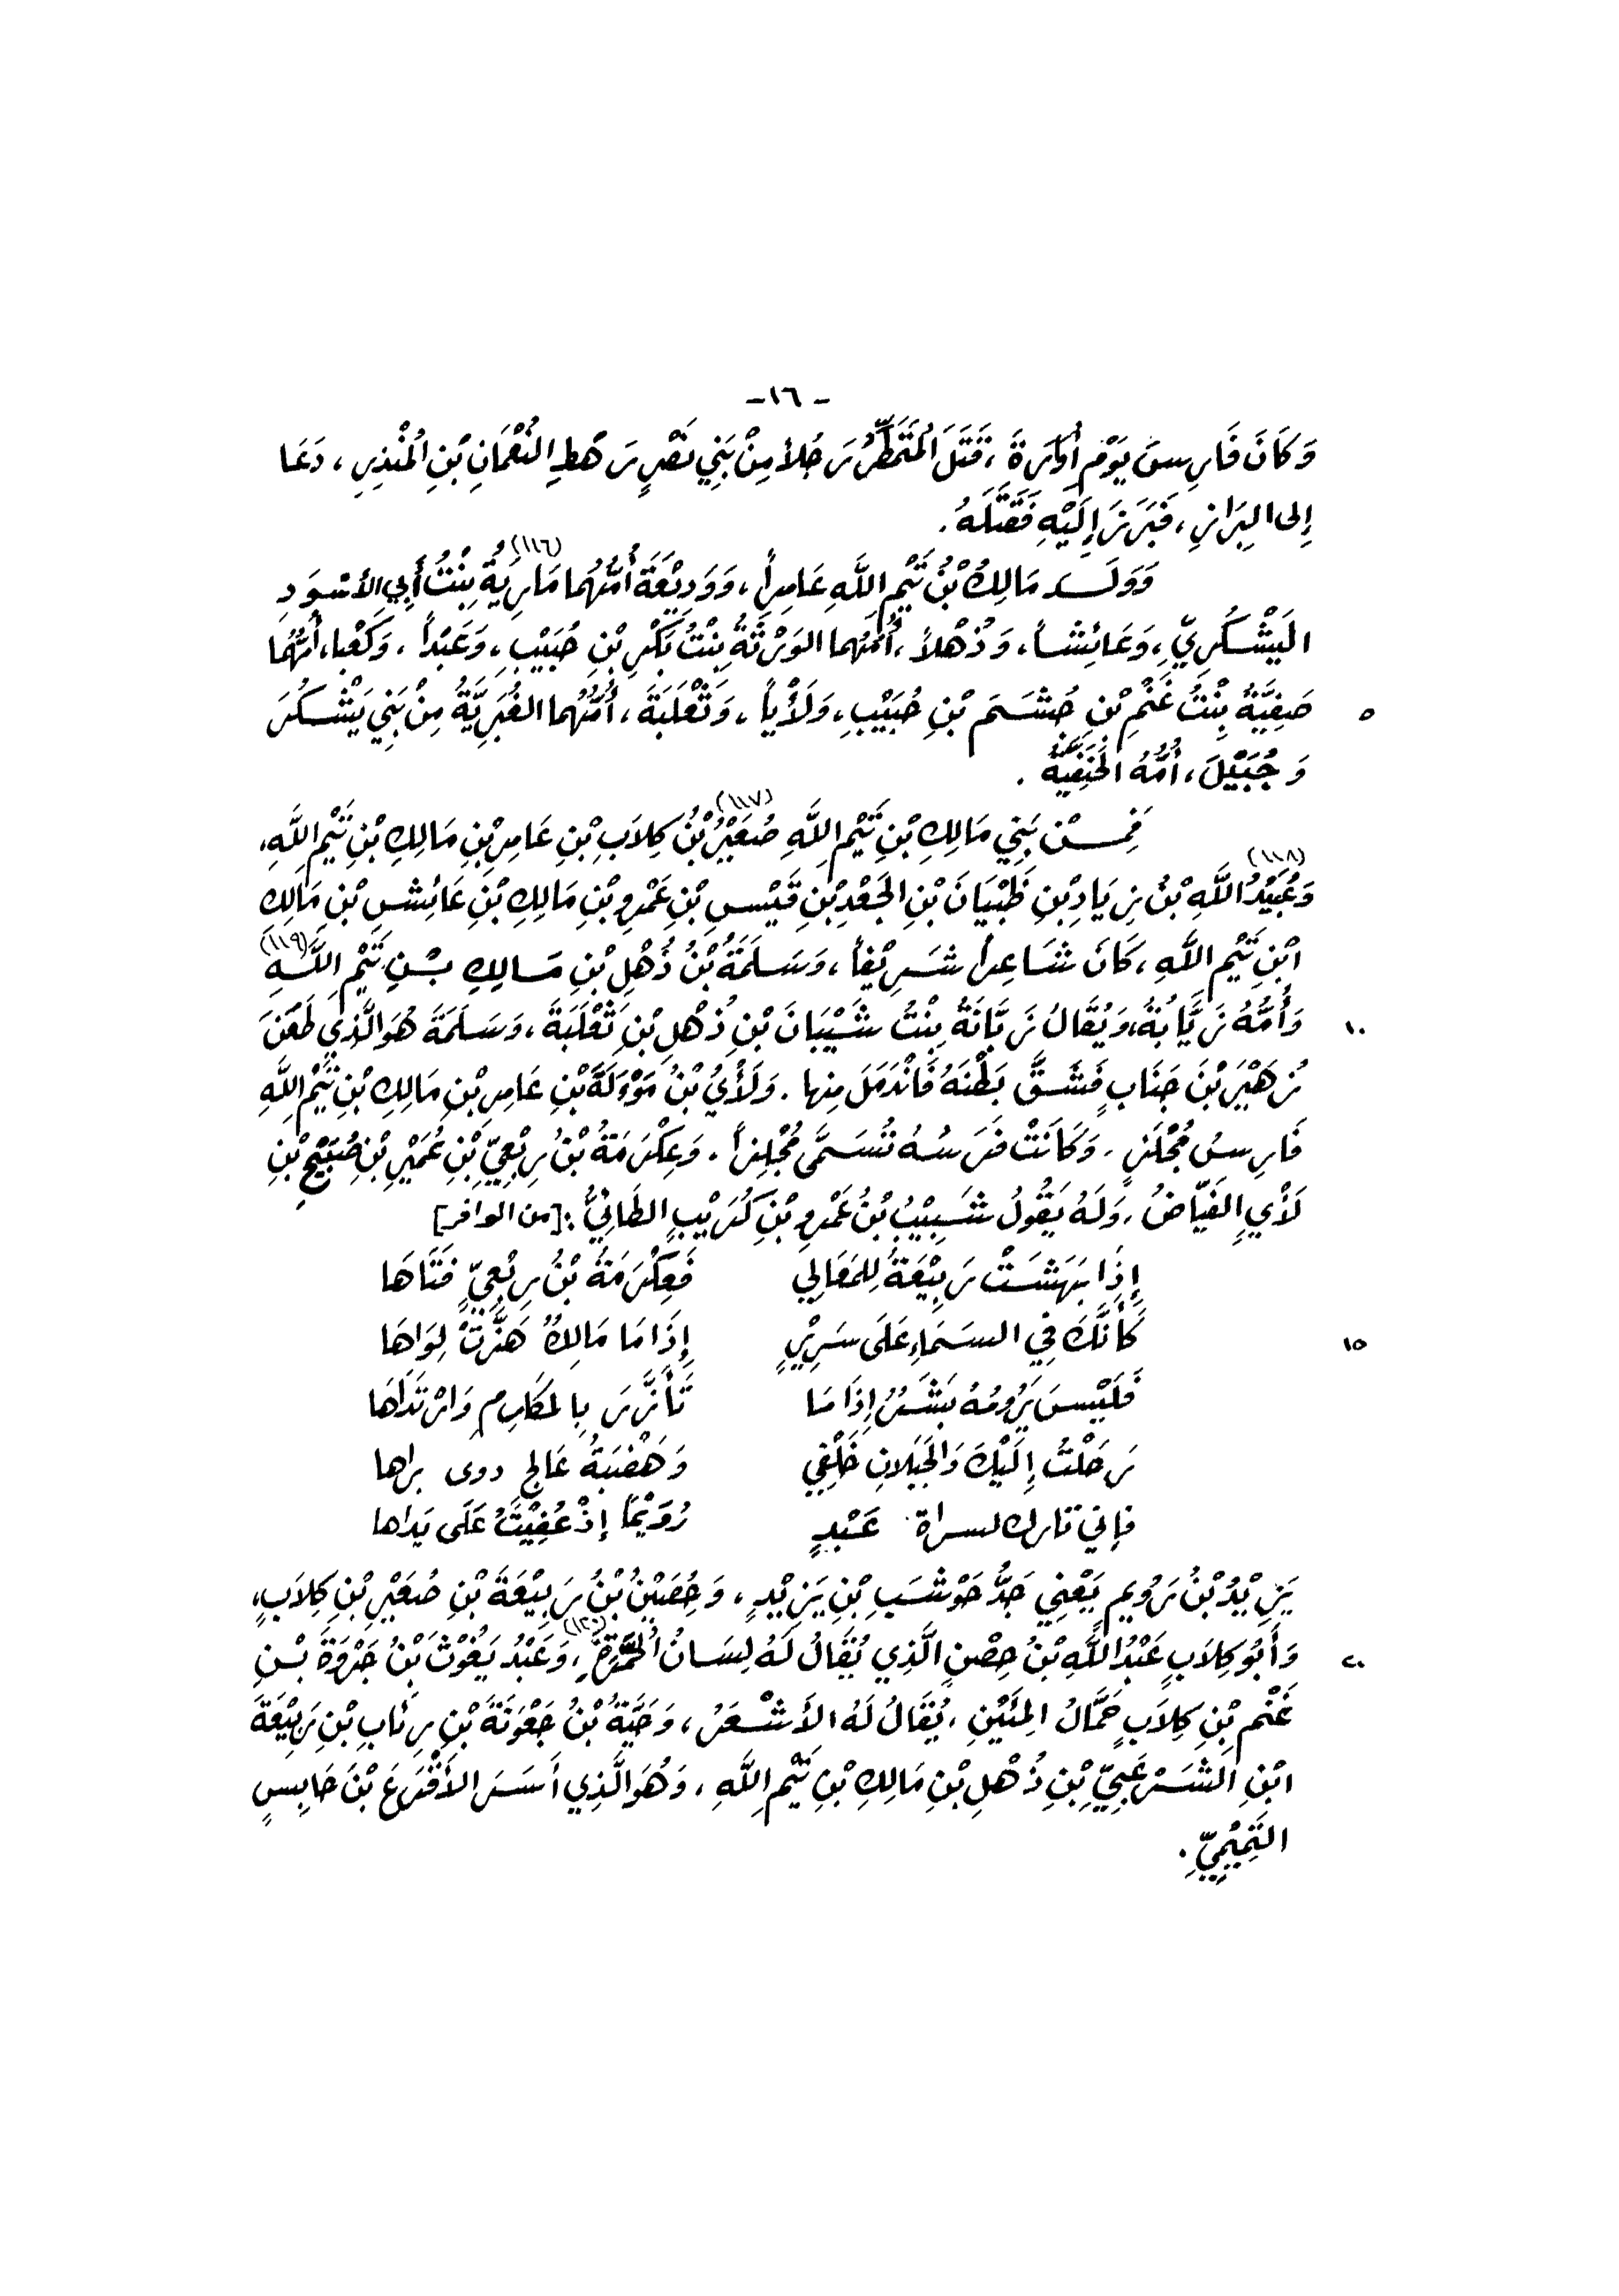 -١٦-
وَكَانَ فَارِسَ يَوْمِ أُوَارَةَ، قَتَلَ المُتَمَطِّرُ رَجُلاً مِنْ بَنِي نَصْرٍ رَهْطِ النُّعْمَانِ بْنِ المُنْذِرِ، دَعَا
إِلى البِرَازِ، فَبَرَزَ إِلَيْهِ فَقَتَلَهُ.
وَوَلَـد مَالِكُ بْنُ تَيْمِ اللَّهِ عَامِراً، وَوَدِيْعَةَ أُمُّهُما مَارِيَةُ (١١٦) بِنْتُ أَبِي الأَسْوَدِ
اليَشْكُرِيِّ، وَعَائِشاً، وَذُهْلاً، أُمُّهُما الوَرْثَةُ بِنْتُ بَكْرِ بْنِ حُبَيْبِ، وَعَبْداً، وَكَعْبا، أُمُّهُما
صَفِيَّةُ بِنْتُ غَنْمِ بْنِ جُشَمَ بْنِ حُبَيْبِ، وَلَأْياً، وَثَعْلَبَةَ، أُمُّهُما الغُبَرِيَّةُ مِنْ بَنِي يَشْكُرَ ٥
وَجُبَيْلَ، أُمُّهُ الحَنَفِيَّةُ.
فَمِـنْ بَنِي مَالِكِ بْنِ تَيْمِ اللَّهِ صُعَيْرُ (١١٧) بْنُ كِلَابِ بْنِ عَامِرِ بْنِ مَالِكِ بْنِ تَيْمِ اللَّهِ،
وَعُبَيْدُ (١١٨) اللَّهِ بْنُ زِيَادِ بْنِ ظَبْيَانَ بْنِ الجَعْدِ بْنِ قَيْسِ بْنِ عَمْرِو بْنِ مَالِكِ بْنِ عَائِشِ بْنِ مَالِكِ
ابْنِ تَيْمِ اللَّهِ، كَانَ شَاعِراً شَرِيْفاً، وَسَلَمَةُ بْنُ ذُهْلِ بْنِ مَالِكِ بْنِ تَيْمِ اللَّهِ (١١٩)
وَأُمُّهُ زَيَّابَةُ، وَيُقَالُ زَبَّانَةُ بِنْتُ شَيْبَانَ بْنِ ذُهْلِ بْنِ ثَعْلَبَةَ، وَسَلَمَةَ هُوَ الَّذِي طَعَنَ ١٠
زُهَيْرَ بْنَ جَنَابٍ فَشَقَّ بَطْنَهُ فَانْدَمَلَ مِنها. وَلَأْيُ بْنُ مَوْءَلَةَ بْنِ عَامِرِ بْنِ مَالِكِ بْنِ تَيْمِ اللَّهِ
فَارِسُ مُجْلَزٍ. وَكَانَتْ فَرَسُهُ تُسَمَّى مُجْلِزاً. وَعِكْرَمَةُ بْنُ رِبْعِيِّ بْنِ عُمَيْرِ بْنِ صُبَيْحِ بْنِ
لَأْيِ الفَيَّاضُ، وَلَهُ يَقُولُ شَبِيْبُ بْنُ عَمْرِو بْنِ كُرَيْبٍ الطَّائِيُّ: [من الوافر]
إِذَا بَهَشَتْ رَبِيْعَةُ لِلمَعَالِي فَعِكْرَمَةُ بْنُ رِبْعِيٍّ فَتَاهَا
كَأَنَّكَ فِي السَّمَاءِ عَلَى سَرِيْرٍ إِذَا مَا مَالِكٌ هَزَّتْ لِوَاهَا ١٥
فَلَيْسَ يَرُومُهُ بَشَرٌ إِذَا مَا تَأَزَّرَ بِالمَكَارِمِ وَارْتَدَاهَا
رَحَلْتُ إِلَيْكَ وَالجَبَلانِ خَلْفِي وَهَضْبَةُ عَالِجٍ دوى براها
فإني تارك لسراة عَبْدٍ رُوَيْمًا إِذْ عُفِيْتُ عَلَى يَداها
يَزِيْدُ بْنُ رُوَيمٍ يَعْنِي جَدَّ حَوْشَبِ بْنِ يَزِيْدٍ، وَحُصَيْنُ بْنُ رَبِيْعَةَ بْنِ صُعَيْرِ بْنِ كِلَابٍ،
وَأَبُو كِلَابٍ عَبْدُ اللَّهِ بْنُ حِصْنٍ الَّذِي يُقَالُ لَهُ لِسَانُ الحُمَّرَةِ (١٢٠)، وَعَبْدُ يَغُوْثَ بْنُ جَرْوَةَ بْنِ ٢٠
غَنْمِ بْنِ كِلَابٍ حَمَّالُ المِئَيْنِ، يُقَالُ لَهُ الأَشْعَرُ، وَحَيَّةُ بْنُ جَعْوَنَةَ بْنِ رِئَابِ بْنِ رَبِيْعَةَ
ابْنِ الشَّرْعَبِيِّ بْنِ ذُهْلِ بْنِ مَالِكِ بْنِ تَيْمِ اللَّهِ، وَهُوَ الَّذِي أَسَرَ الأَقْرَعَ بْنَ حَابِسٍ
التَّمِيْمِيِّ.